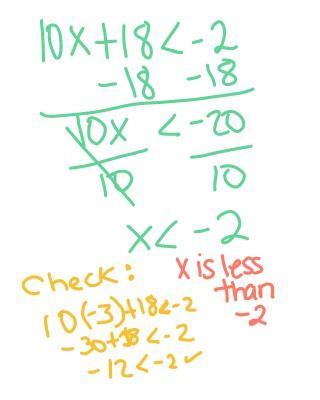 10x+18<-2
-18 -18
10x <-20
10 10
x<-2
Check:
x is less
than
-2
10(-3)+18<-2
-30+18<-2
-12<-2✓